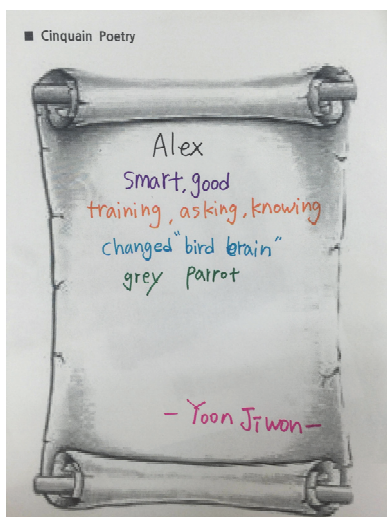 ■ Cinquain Poetry
Alex
smart, good
training, asking, knowing
changed "bird brain"
grey parrot
- Yoon Jiwon -